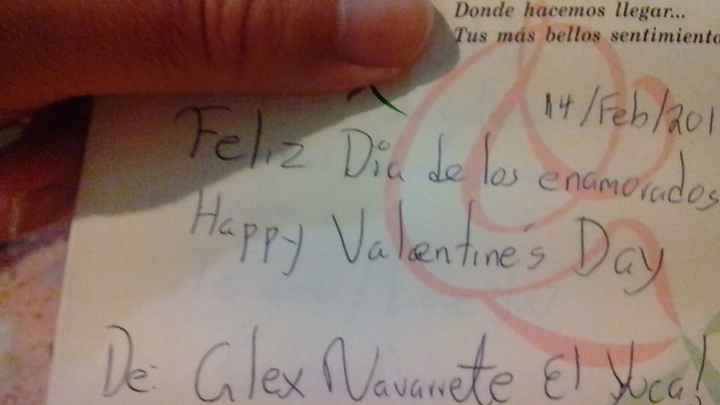 Donde hacemos llegar...
Tus más bellos sentimiento
14/Feb/201
Feliz Dia de los enamorados
Happy Valentine's Day
De: Alex Navarrete El Yuca!